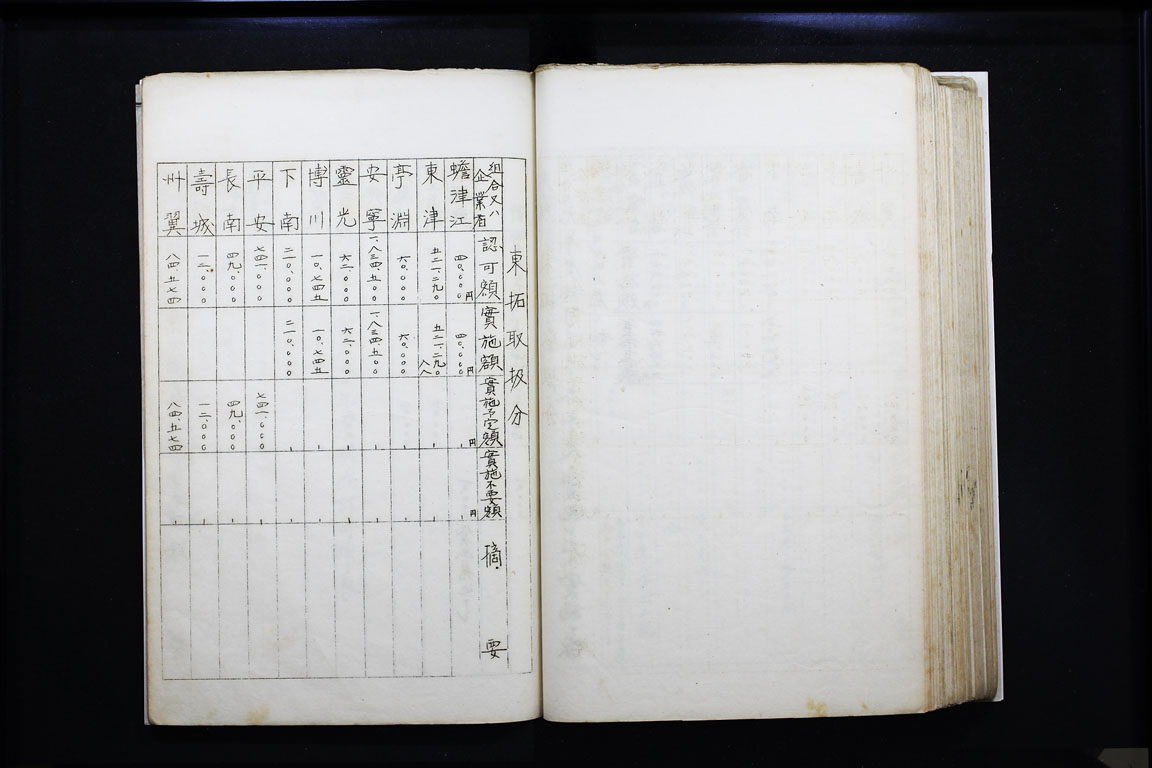 東拓取扱分
組合又ハ企業者 認可額 實施額 實施予定額 實施不要額 摘要
蟾津江 四〇.〇〇〇円 四〇.〇〇〇円 円 円
東津 五二一.二九〇 五二一.二九〇 八八
亭淵 六〇.〇〇〇 六〇.〇〇〇
安寧 一.八三四.五〇〇 一.八三四.五〇〇
博川 一〇.七四五 一〇.七四五
靈光 六二.〇〇〇 六二.〇〇〇
下南 二一〇.〇〇〇 二一〇.〇〇〇
平安 七四一.〇〇〇 七四一.〇〇〇
長南 四九.〇〇〇 四九.〇〇〇
壽城 一二.〇〇〇 一二.〇〇〇
州翼 八四.五七四 八四.五七四